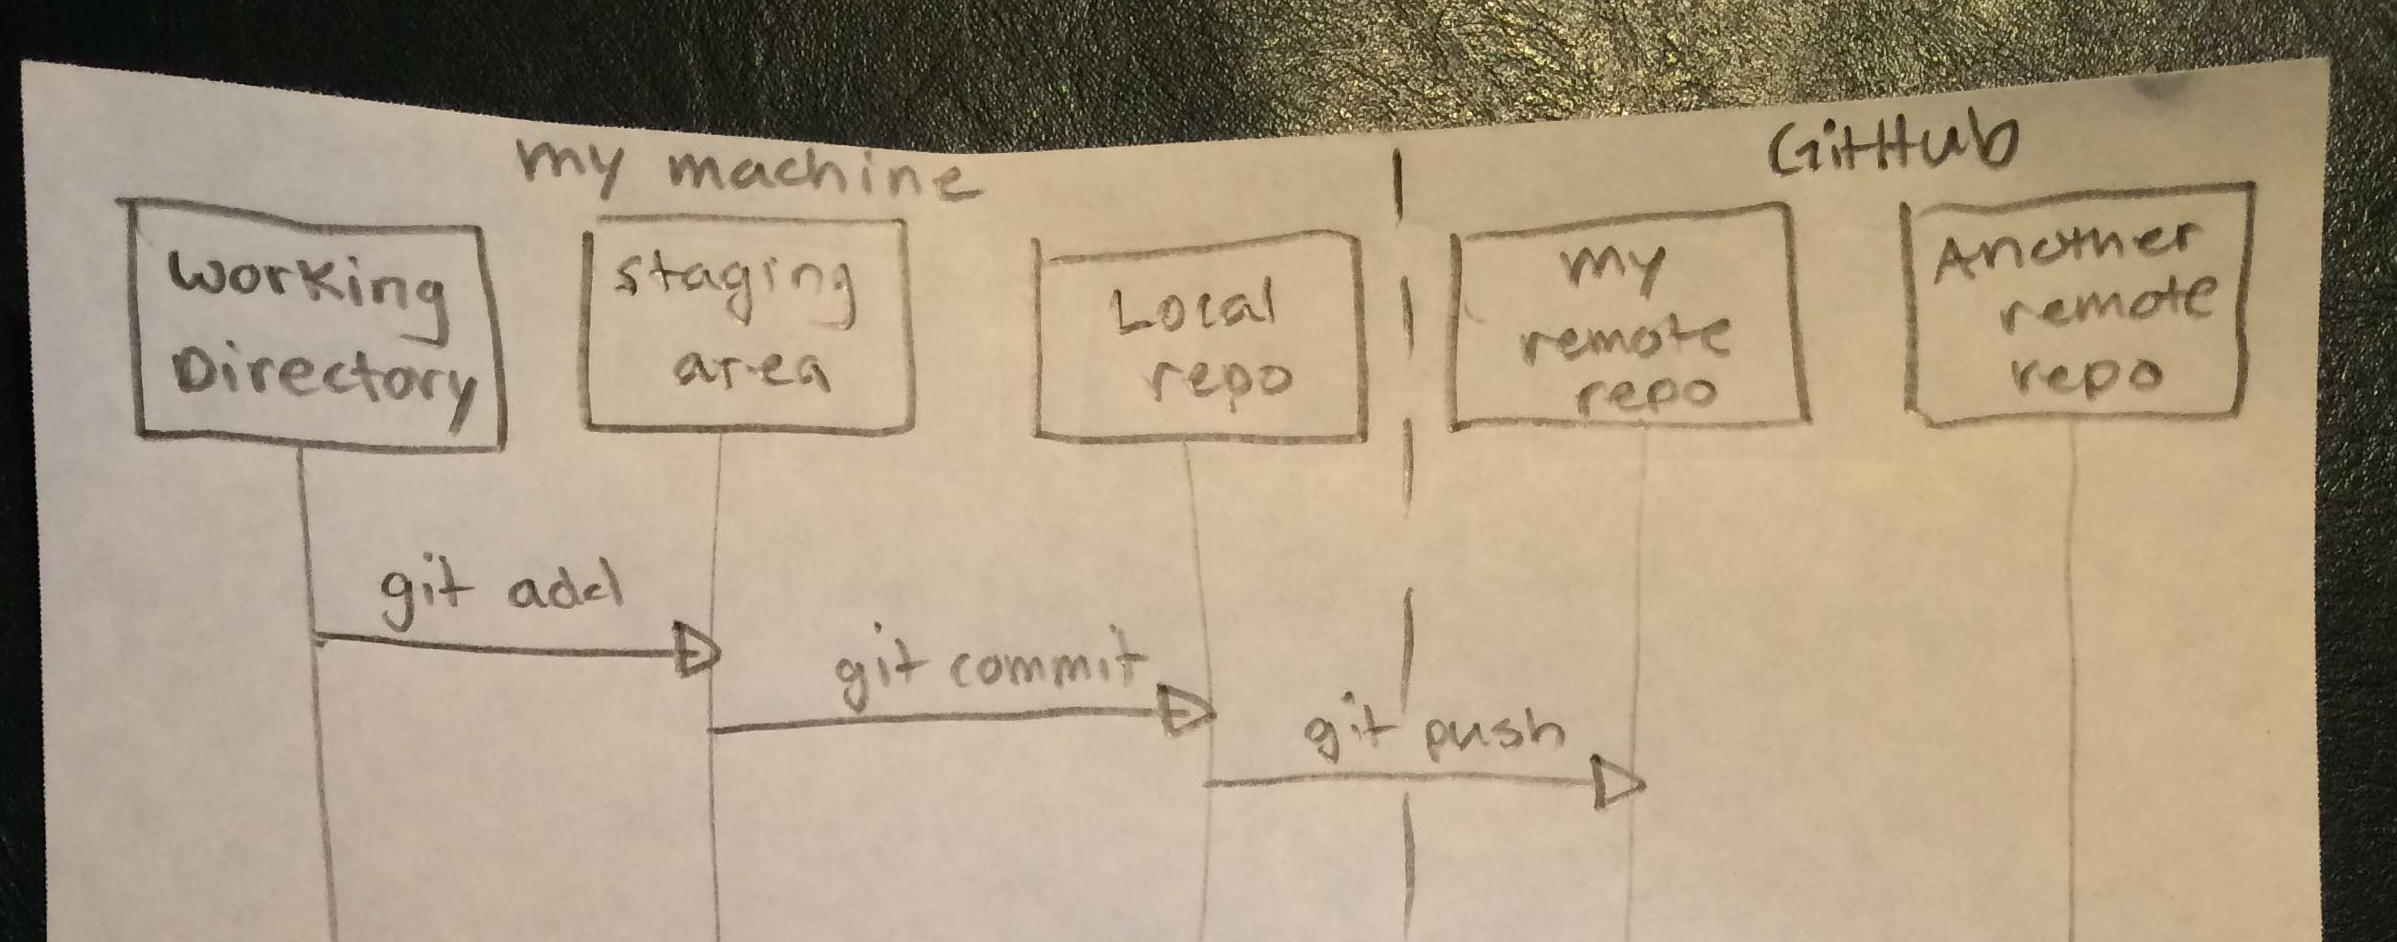 my machine
GitHub
Working
Directory
Staging
area
Local
repo
my
remote
repo
Another
remote
repo
git add
git commit
git push